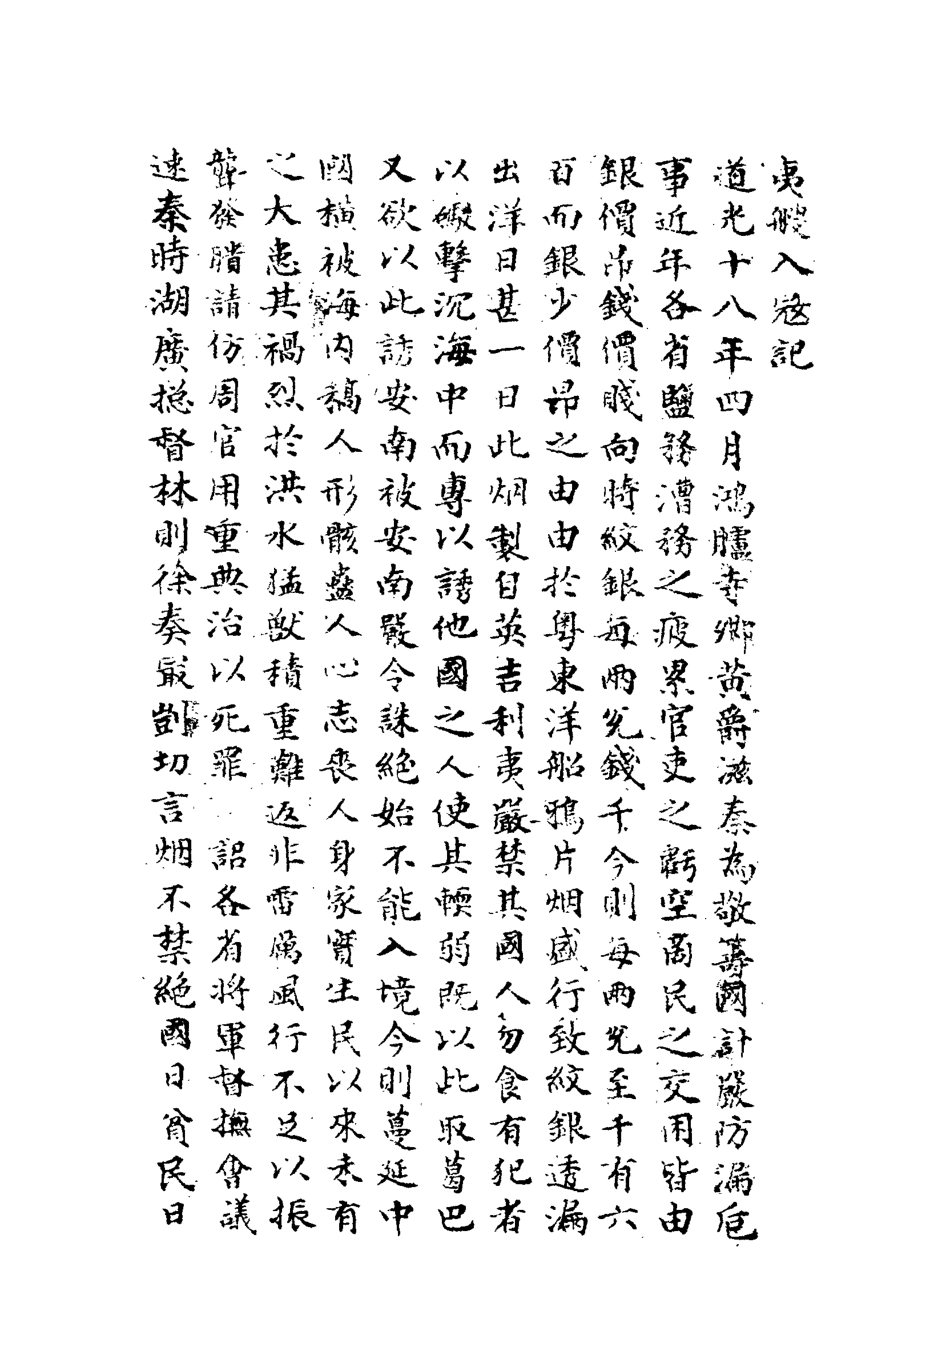 夷艘入寇記
道光十八年四月鴻臚寺卿黃爵滋奏為敬籌國計嚴防漏卮
事近年各省鹽務漕務之疲累官吏之虧空商民之交困皆由
銀價昂錢價賤向時紋銀每兩兌錢千今則每兩兌至千有六
百而銀少價昂之由由於粵東洋船鴉片烟盛行致紋銀透漏
出洋日甚一日此烟製自英吉利夷嚴禁其國人勿食有犯者
以礮擊沉海中而專以誘他國之人使其輭弱既以此取葛巴
又欲以此誘安南被安南嚴令誅絕始不能入境今則蔓延中
國橫被海內槁人形骸蠱人心志喪人身家實生民以來未有
之大患其禍烈於洪水猛獸積重難返非雷厲風行不足以振
聾發聵請仿周官用重典治以死罪 詔各省將軍督撫會議
速奏時湖廣總督林則徐奏最剴切言烟不禁絕國日貧民日